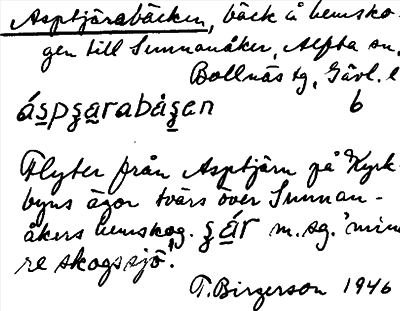 Asptjärabäcken, bäck å hemsko-
gen till Sunnanåker, Alfta sn,
Bollnäs tg, Gävl. l
áspʂarabåʂen 6
Flyter från Asptjärn på Kyrk-
byns ägor tvärs över Sunnan-
åkers hemskog. ʂár m. sg. 'mind
re skogssjö'.
T. Birgerson 1946